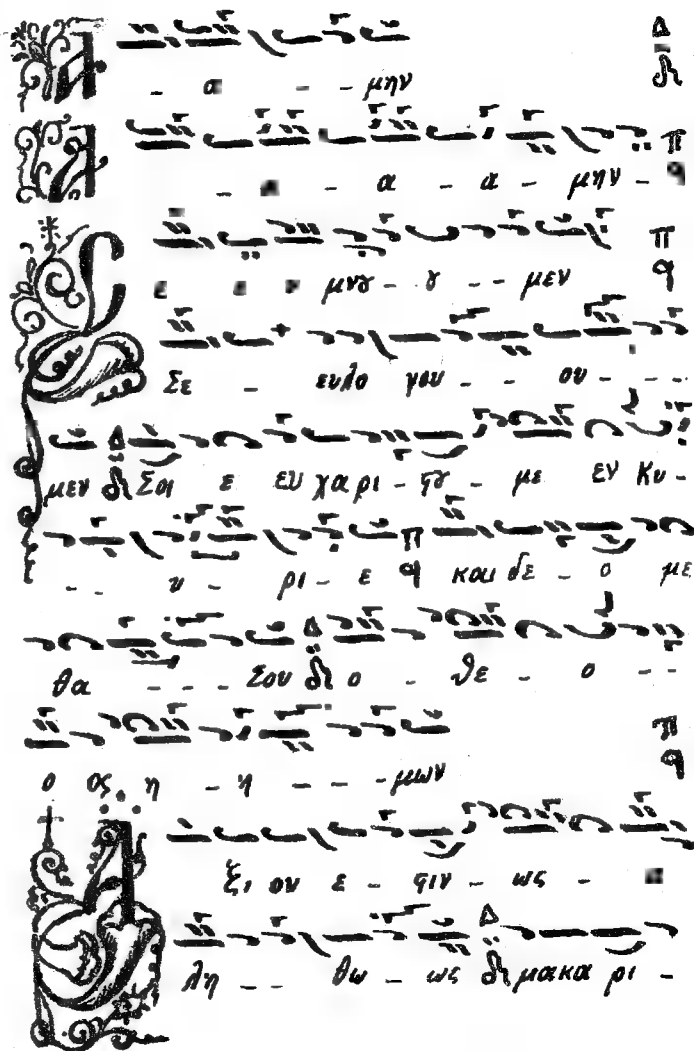 Α - α - - μην Δ
Α - α - α - α - μην - π
Σ ε ε ε μνȣ - ȣ - - μεν π
Σε - ευλο γου - - ου - - - -
μεν Δ Σοι ε ευ χα ρι - ϛȣ - με εν Κυ -
- - υ - ρι - ε π q και δε - ο με
θα - - - Σου Δ ο - θε - ο - -
ο ος η - η - - - μων π q
Α ξι ον ε - ϛιν - ως - α
λη - - θω - ως Δ μακα ρι -